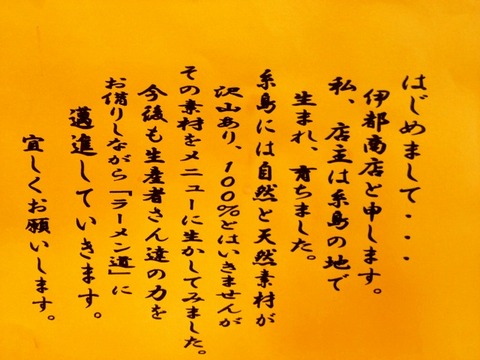 はじめまして・・・
伊都商店と申します。
私、店主は糸島の地で
生まれ、育ちました。
糸島には自然と天然素材が
沢山あり、100%とはいきませんが
その素材をメニューに生かしてみました。
今後も生産者さん達の力を
お借りしながら「ラーメン道」に
邁進していきます。
宜しくお願いします。